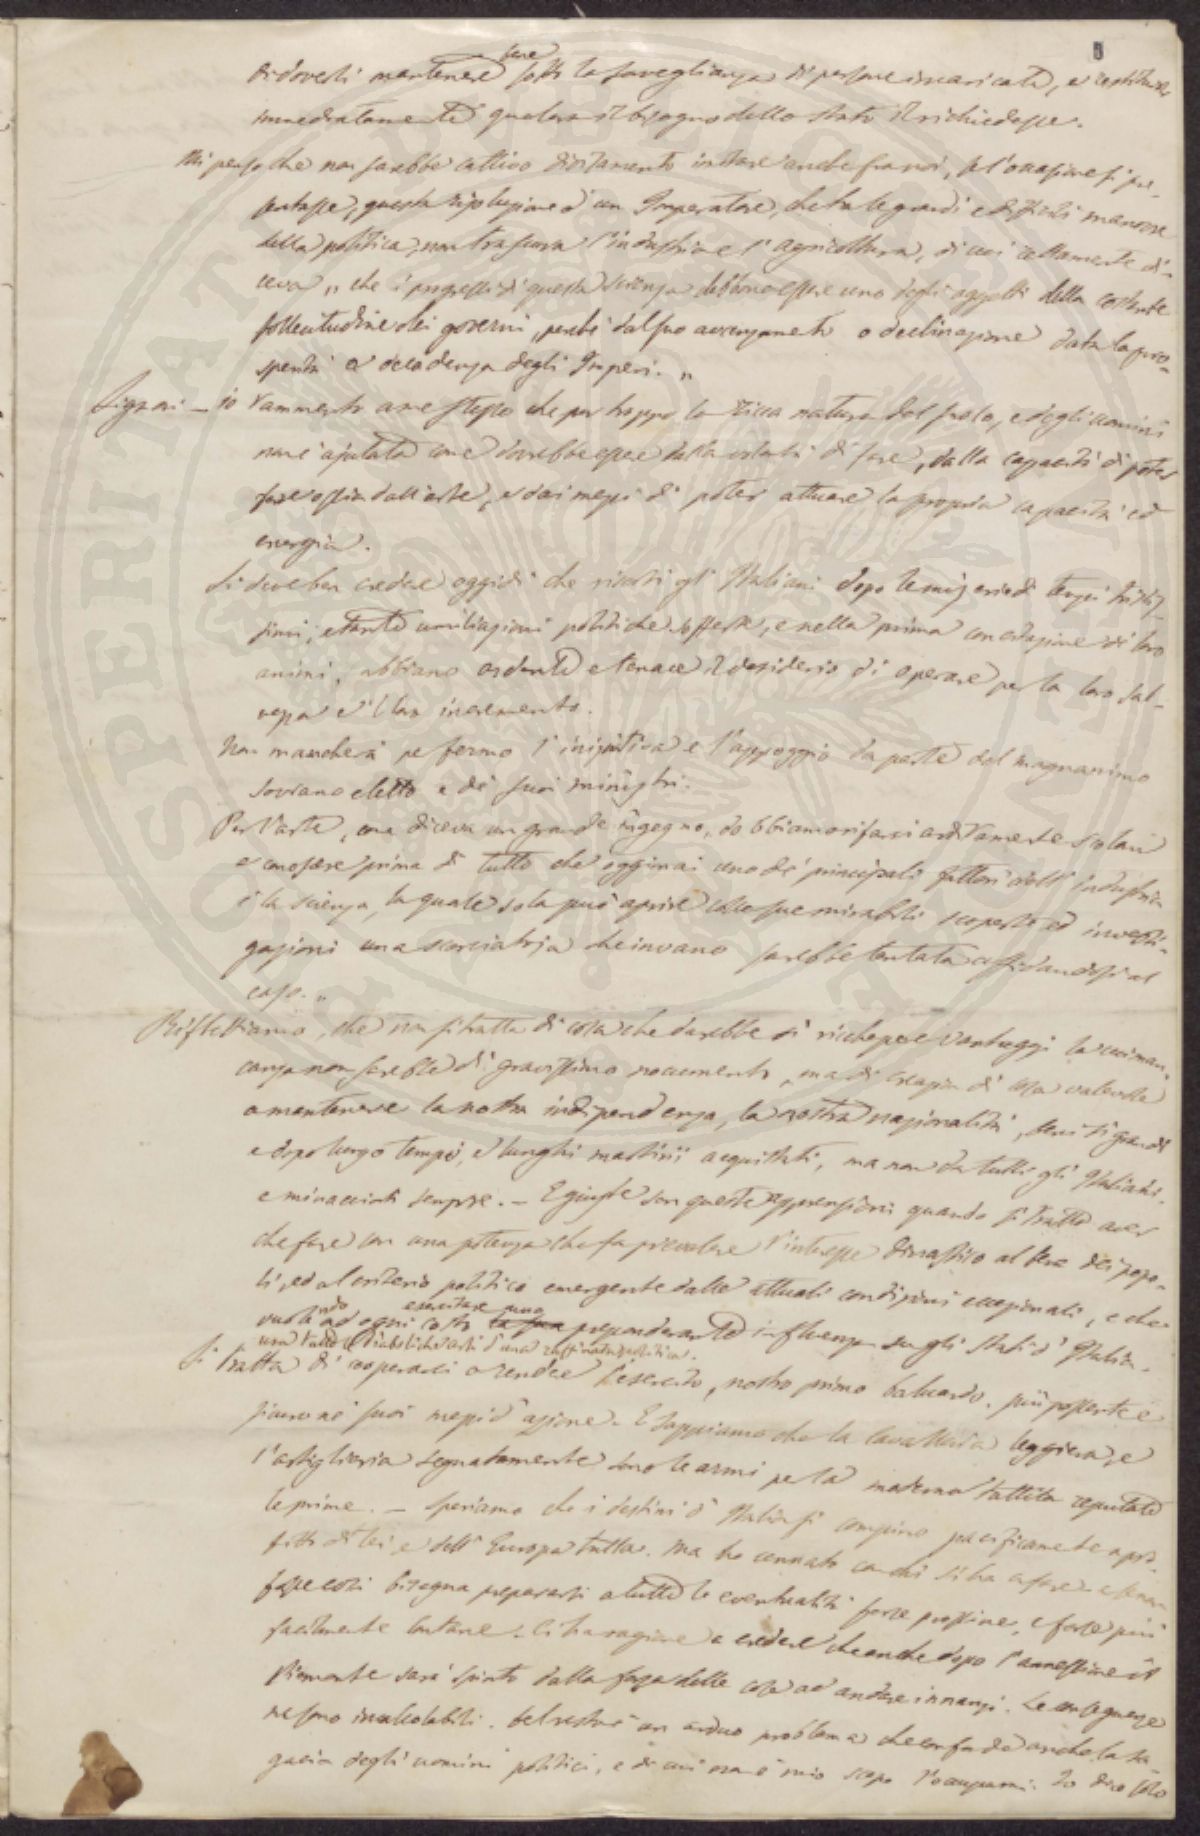 di doversi mantenere bene sotto la sorveglianza di persone incaricate, e restituire
immediatamente qualora il bisogno dello stato il richiedesse.
Mi penso che non sarebbe cattivo divisamento imitare anche fra noi, se l'occasione si pre-
sentasse, questa risoluzione d'un Imperatore, che tra le grandi e difficili manovre
della politica, non trascura l'industria e l'agricoltura, di cui certamente di-
ceva „ che i progressi di questa scienza debbono essere uno degli oggetti della costante
sollecitudine dei governi, perché dal suo avanzamento o declinazione data la pros-
perità e decadenza degli Imperi. „
Signori – io rammento a me stesso che pur troppo la ricca natura del suolo, e degli uomini
non è ajutata come dovrebbe essere dalla volontà di fare, dalla capacità di poter
fare ossia dall'arte, e dai mezzi di poter attuare la propria capacità ed
energia.
Si deve ben credere oggidì che risorti gli Italiani dopo le miserie di tempi tristis-
simi, e tante umiliazioni politiche sofferte, e nella prima concitazione di loro
animi, abbiano ardente e tenace il desiderio di operare per la loro sal-
vezza e il loro incremento.
Non mancherà per fermo l'iniziativa e l'appoggio da parte del magnanimo
sovrano eletto e de' suoi ministri.
Per l'arte, come diceva un grande ingegno, dobbiamo rifarci arditamente scolari
e conoscere prima di tutto che oggimai uno de' principali fattori dell'industria
è la scienza, la quale sola può aprire colle sue mirabili scoperte ed investi-
gazioni una scorciatoja che invano sarebbe tentata affidandosi al
caso. „
Riflettiamo, che non si tratta di cosa che darebbe sì ricchezze e vantaggi la cui man-
canza non sarebbe di gravissimo nocumento, ma di creazion di cosa valevole
a mantenere la nostra indipendenza, la nostra nazionalità, beni sì grandi
e dopo lungo tempo, e lunghi martirii acquistati, ma non da tutti gli Italiani,
e minacciati sempre. – E giuste son queste apprensioni quando si tratta aver
che fare con una potenza che fa prevalere l'interesse dinastico al bene dei popo-
li, ed al criterio politico emergente dalle attuali condizioni eccezionali, e che
vuole ad ogni costo esercitare una preponderante influenza su gli Stati d'Italia
con tutte le diaboliche arti d'una raffinata politica.
Si tratta di cooperarci a rendere l'esercito, nostro primo baluardo, più possente e
sicuro ne' suoi mezzi d'azione. E sappiamo che la cavalleria leggiera, e
l'artiglieria segnatamente sono le armi per la moderna tattica reputate
le prime. – Speriamo che i destini d'Italia si compino pacificamente a pro-
fitto di lei e dell'Europa tutta. Ma ho cennato con chi si ha a fare e se non
fosse così bisogna prepararsi a tutte le eventualità forse prossime, e forse più
facilmente lontane. Ci ha ragione a credere che anche dopo l'annessione il
Piemonte sarà spinto dalla forza delle cose ad andare innanzi. Le conseguenze
ne sono incalcolabili. Del resto è un arduo problema che confonde anche la sa-
gacia degli uomini politici, e di cui non è mio scopo l'occuparmi. Io dico solo